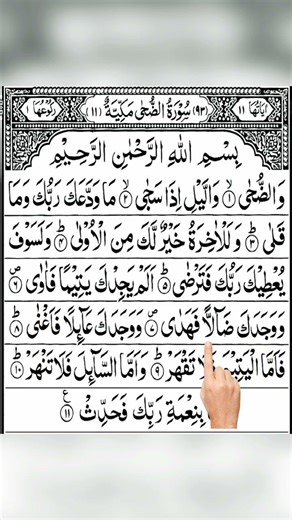 اٰیَاتُهَا ۱۱ (۹۳) سُوْرَةُ الضُّحٰى مَكِّيَّةٌ (۱۱) رُكُوْعُهَا ۱
بِسْمِ اللّٰهِ الرَّحْمٰنِ الرَّحِيْمِ
وَالضُّحٰى ۙ‏ ۱ وَالَّيْلِ اِذَا سَجٰى ۙ‏ ۲ مَا وَدَّعَكَ رَبُّكَ وَمَا
قَلٰى ؕ‏ ۳ وَلَلْاٰخِرَةُ خَيْرٌ لَّكَ مِنَ الْاُوْلٰى ؕ‏ ۴ وَلَسَوْفَ
يُعْطِيْكَ رَبُّكَ فَتَرْضٰى ؕ‏ ۵ اَلَمْ يَجِدْكَ يَتِيْمًا فَاٰوٰى ۪‏ ۶
وَوَجَدَكَ ضَآلًّا فَهَدٰى ۪‏ ۷ وَوَجَدَكَ عَآئِلًا فَاَغْنٰى ؕ‏ ۸
فَاَمَّا الْيَتِيْمَ فَلَا تَقْهَرْ ؕ‏ ۹ وَاَمَّا السَّآئِلَ فَلَا تَنْهَرْ ؕ‏ ۱۰
بِنِعْمَةِ رَبِّكَ فَحَدِّثْ ۱۱ ع